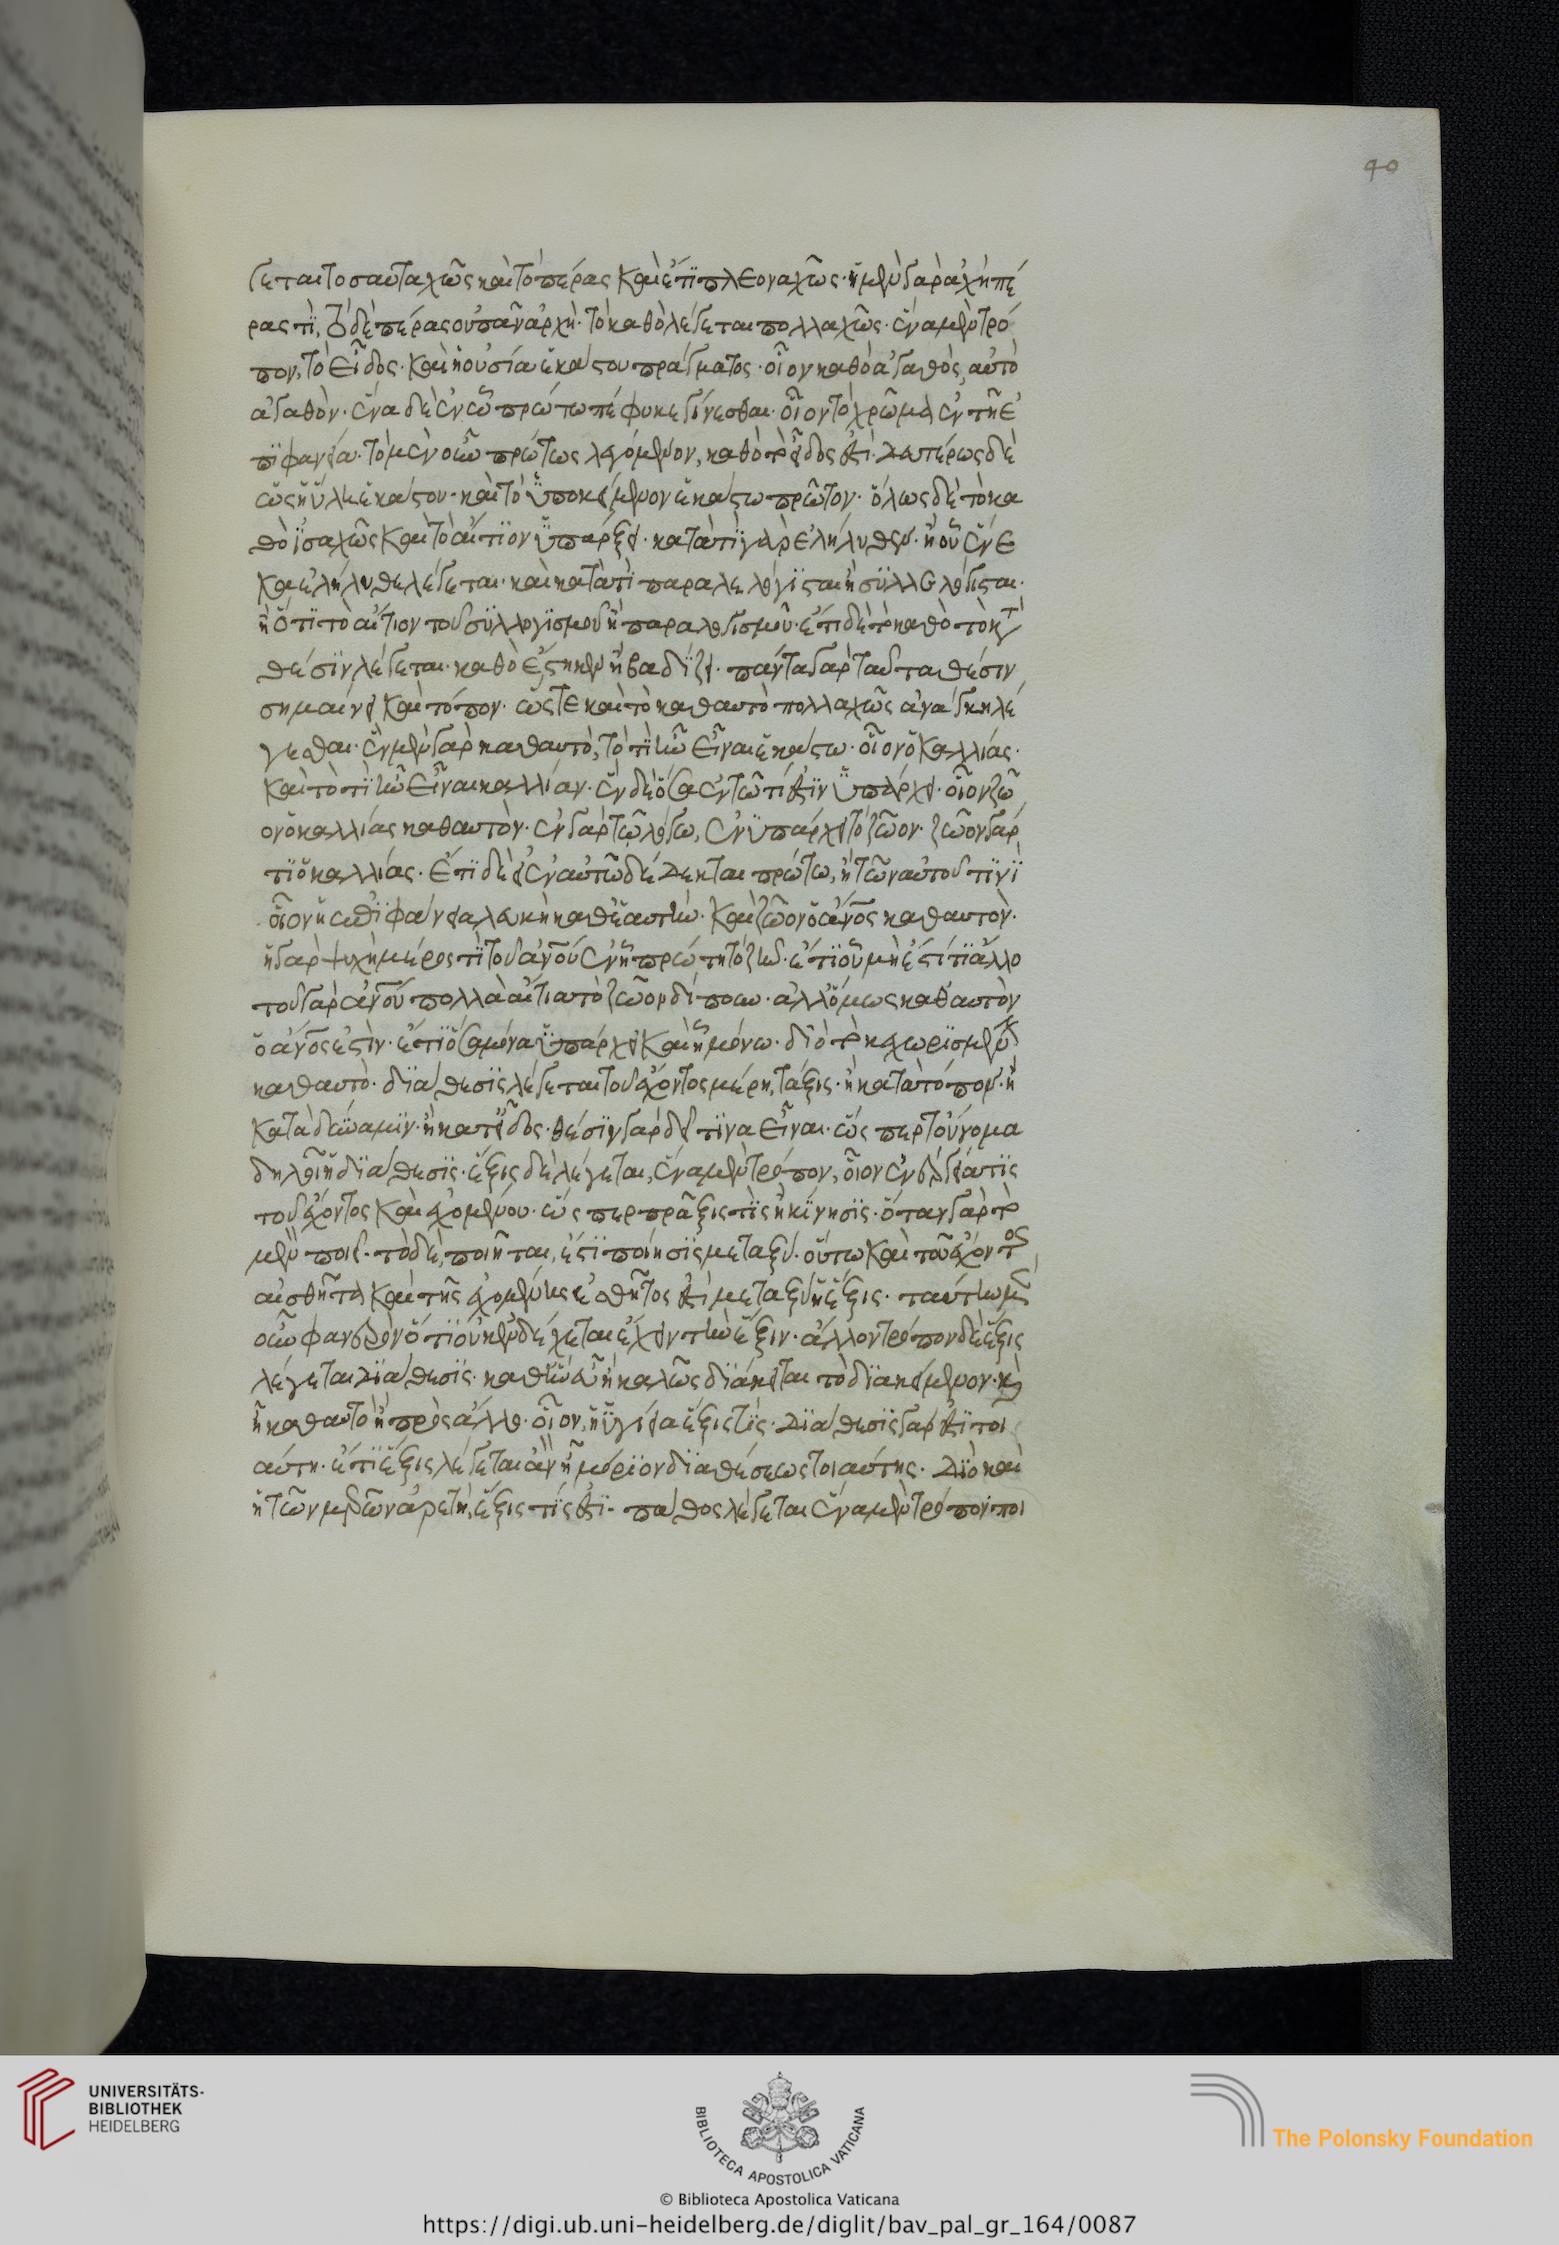 40
γεται τοσαυταχῶς καὶ τὸ πέρας καὶ ἔτι πλεοναχῶς· ἡ μὲν γὰρ ἀρχὴ πέ
ρας τι, τὸ δὲ πέρας οὐ πᾶν ἀρχή· τὸ καθὸ λέγεται πολλαχῶς· ἕνα μὲν τρό
πον, τὸ εἶδος· καὶ ἡ οὐσία ἑκάστου πράγματος· οἷον καθὸ ἀγαθὸς, αὐτὸ
ἀγαθὸν· ἕνα δὲ ἐν ὧ πρώτω πέφυκε γίνεσθαι· οἷον τὸ χρῶμα ἐν τῆ ἐ
πιφανεία· τὸ μὲν οὖν πρώτως λεγόμενον, καθὸ τὸ εἶδός ἐστι· δευτέρως δὲ
ὡς ἡ ὕλη ἑκάστου· καὶ τὸ ὑποκείμενον ἑκάστω πρῶτον· ὅλως δὲ τὸ κα
θὸ ἰσαχῶς καὶ τὸ αἴτιον ὑπάρξει· κατὰ τί γὰρ ἐλήλυθεν· ἢ οὗ ἕνε
κα ἐλήλυθε λέγεται· καὶ κατὰ τί παραλελόγισται ἢ συλλελόγισται·
ἢ ὅτι τὸ αἴτιον τοῦ συλλογισμοῦ ἢ παραλογισμοῦ· ἔτι δὲ τὸ καθὸ τὸ κτ
θέσιν λέγεται· καθὸ ἕστηκεν ἢ βαδίζει· πάντα γὰρ ταῦτα θέσιν
σημαίνει καὶ τόπον· ὥστε καὶ τὸ καθαυτὸ πολλαχῶς ἀνάγκη λέ
γεσθαι· ἓν μὲν γὰρ καθαυτὸ, τὸ τί ἦν εἶναι ἑκάστω· οἷον ὁ καλλίας·
καὶ τὸ τί ἦν εἶναι καλλίαν· ἓν δὲ ὅσα ἐν τῶ τί ἐστιν ὑπάρχει· οἷον ζῶ
ον ὁ καλλίας καθαυτὸν· ἐν γὰρ τῶ λόγω, ἐνυπάρχει τὸ ζῶον· ζῶον γάρ
τι ὁ καλλίας· ἔτι δὲ εἰ ἐν αὐτῶ δέδεκται πρώτω, ἢ τῶν αὐτοῦ τινὶ
οἷον ἡ ἐπιφάνεια λευκὴ καθ ἑαυτὴν· καὶ ζῶον ὁ ἄνος καθαυτὸν·
ἡ γὰρ ψυχὴ μέρος τι τοῦ ἀνοῦ ἐν ἧ πρώτη τὸ ζῆν· ἔτι οὗ μὴ ἐστί τι ἄλλο
τοῦ γὰρ ἀνοῦ πολλὰ αἴτια τὸ ζῶον δίπουν· ἀλλ ὅμως καθ αὑτὸν
ὁ ἄνος ἐστὶν· ἔτι ὅσα μόνα ὑπάρχει καὶ ἧ μόνω· διὸ τὸ κεχωρισμέν
καθαυτὸ· διάθεσις λέγεται τοῦ ἔχοντος μέρη, τάξις· ἢ κατὰ τόπον· ἢ
κατὰ δύναμιν· ἢ κατ εἶδος· θέσιν γὰρ δεῖ τινα εἶναι· ὥσπερ τοὔνομα
δηλοῖ ἡ διάθεσις· ἕξις δὲ λέγεται, ἕνα μὲν τρόπον, οἷον ἐνέργειά τις
τοῦ ἔχοντος καὶ ἐχομένου· ὥσπερ πρᾶξις τὶς ἢ κίνησις· ὅταν γὰρ τὸ
μὲν ποιεῖ· τὸ δὲ, ποιῆται, ἐστὶ ποίησις μεταξὺ· οὕτω καὶ τοῦ ἔχοντος
αἰσθῆτα καὶ τῆς ἐχομένης ἐσθῆτος ἐστὶ μεταξὺ ἡ ἕξις· ταύτην μὲν
οὖν φανερὸν ὅτι οὐκ ἐνδέχεται ἔχειν τὴν ἕξιν· ἄλλον τρόπον δὲ ἕξις
λέγεται διάθεσις· καθ ἣν εὖ ἢ κακῶς διάκειται τὸ διακείμενον· καὶ
ἢ καθαυτὸ ἢ πρὸς ἄλλο· οἷον, ἡ ὑγίεια ἕξις τὶς· διάθεσις γάρ ἐστι τοι
αύτη· ἔτι ἕξις λέγεται ἂν ἦ μόριον διαθέσεως τοιαύτης· διὸ καὶ
ἡ τῶν μερῶν ἀρετὴ, ἕξις τίς ἐστι· πάθος λέγεται ἕνα μὲν τρόπον· ποι
UNIVERSITÄTS-
BIBLIOTHEK
HEIDELBERG
BIBLIOTECA APOSTOLICA VATICANA
The Polonsky Foundation
© Biblioteca Apostolica Vaticana
https://digi.ub.uni-heidelberg.de/diglit/bav_pal_gr_164/0087